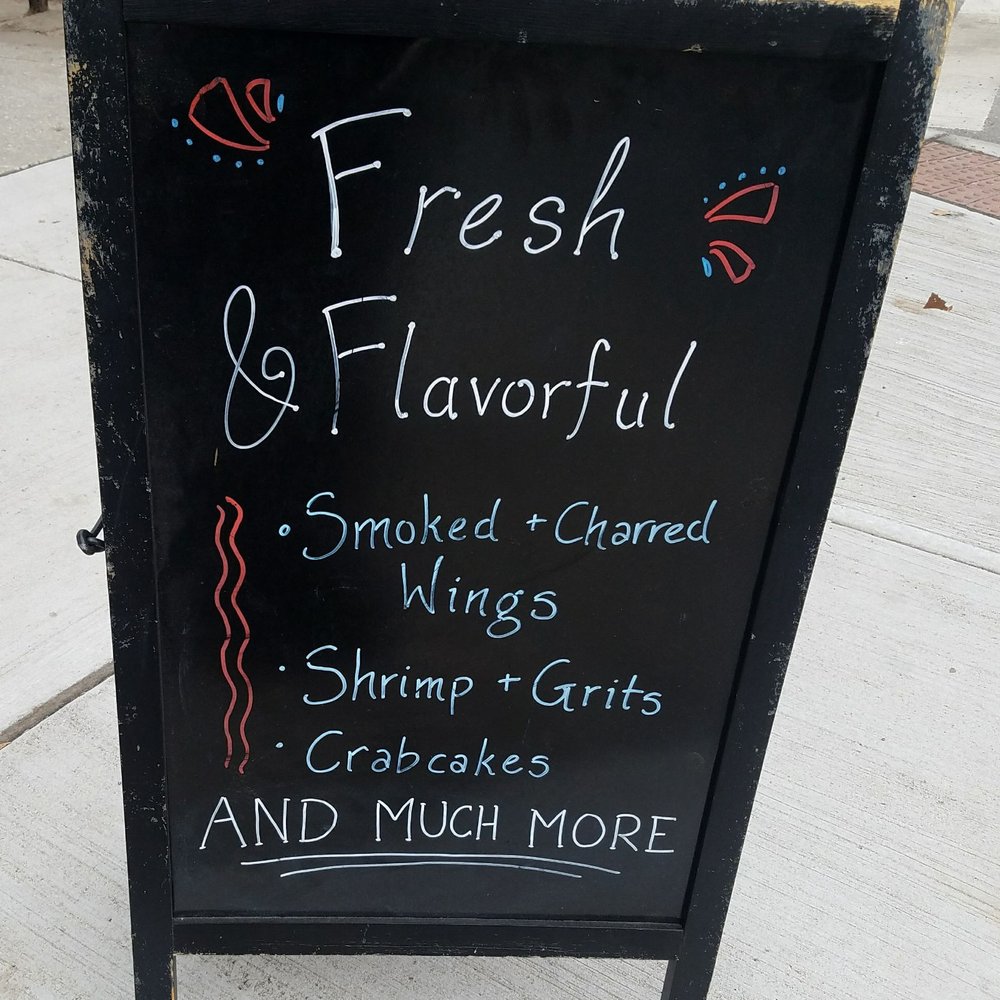 Fresh
& Flavorful
• Smoked + Charred
Wings
• Shrimp + Grits
• Crabcakes
AND MUCH MORE